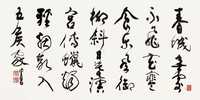 春城無處
不飛花寒
食東風御
柳斜日暮漢
宮傳蠟燭
輕煙散入
五侯家